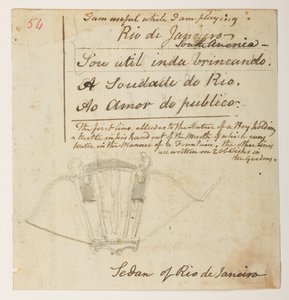 54
I am useful while I am playing.
Rio de Janeiro
South America
Sou util inda brincando.
A Soudade do Rio.
Ao Amor do publico.
The first line alludes to the Statue of a Boy holding
a turtle in his hand out of the Mouth of which runs
water in the Manner of a Fountain. the other lines
are written on 2 Obelisks in
the Gardens.
Sedan of Rio de Janeiro